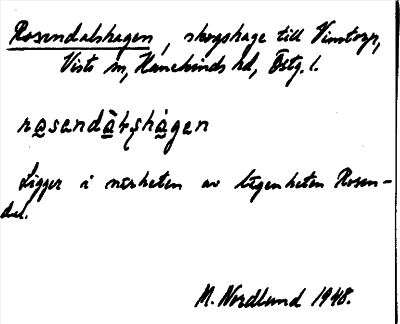 Rosendalshagen, skogshage till Vinstorp,
Vists sn, Hanekinds hd, Östg. l.
rosendàlshàgen
Ligger i närheten av lägenheten Rosen-
dal.
M. Nordlund 1948.